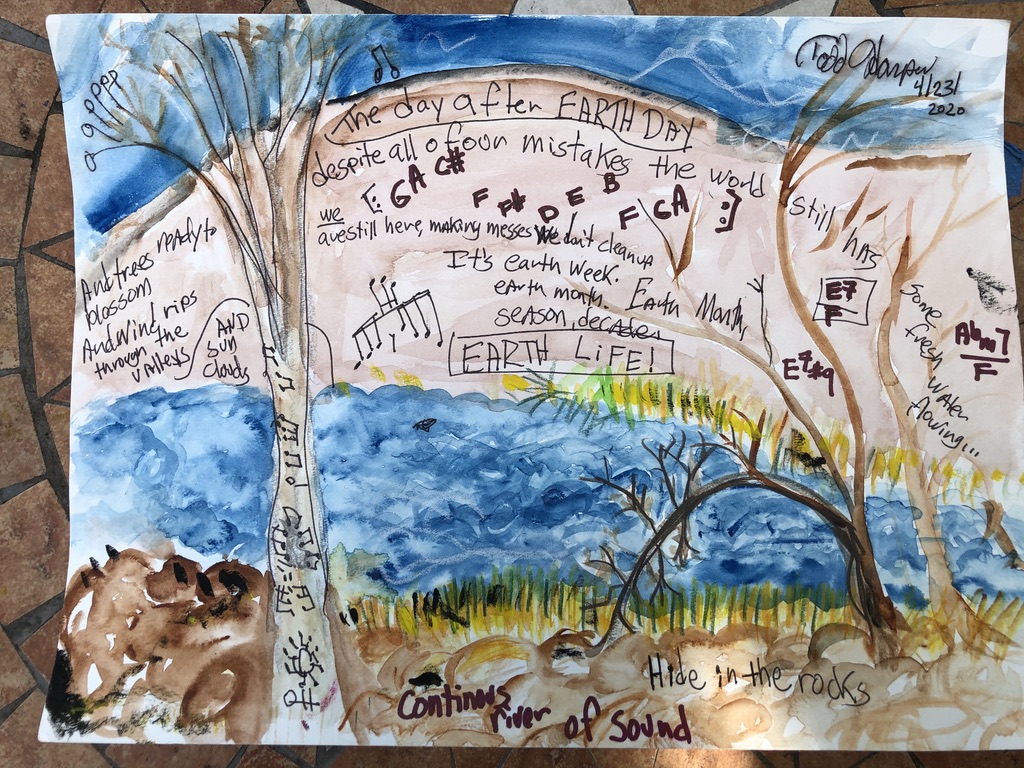 4/23/
2020
The day after EARTH DAY
despite all of our mistakes the world
still has
[: G A C# F F# D E B F G A :]
we
avestill here, making messes We don't clean up
It's earth week.
earth month. Earth Month,
season, decades
EARTH LiFE!
And trees ready to
blossom
And Wind rips
through the
valleys
AND
Sun
Clouds
E7
F
E7#9
Abm7
F
Some
fresh water
flowing...
Hide in the rocks
Continous
river of Sound